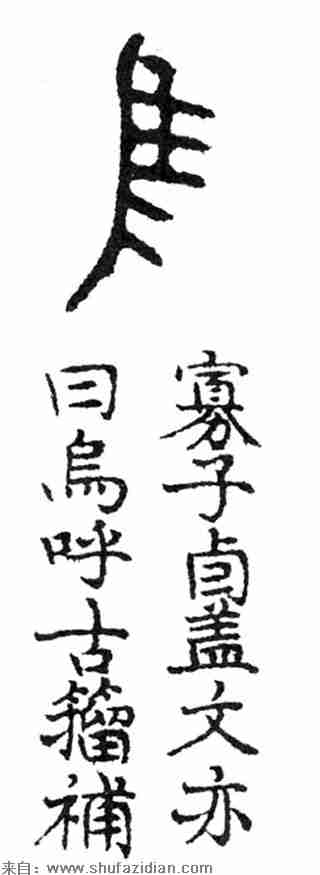 寡子卣盖文亦
曰烏呼古籀補
来自：www.shufazidian.com